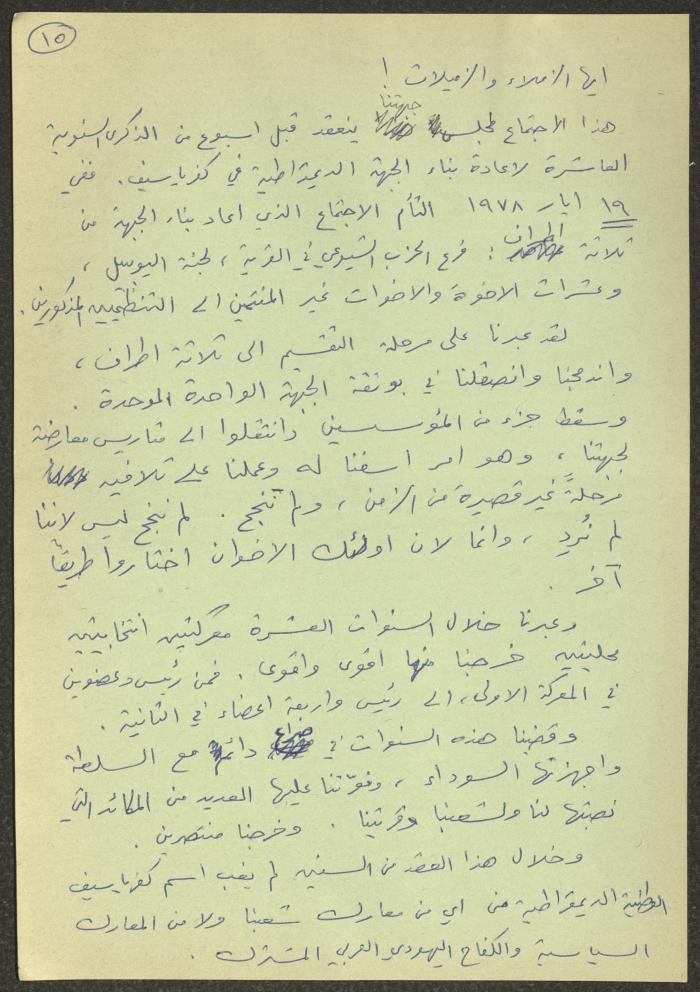 ١٥
ايها الزملاء والزميلات !
هذا الاجتماع لمجلس جبهتنا ينعقد قبل اسبوع من الذكرى السنوية
العاشرة لاعادة بناء الجبهة الديمقراطية في كفرياسيف. ففي
١٩ ايار ١٩٧٨ التأم الاجتماع الذي اعاد بناء الجبهة من
ثلاثة اطراف : فرع الحزب الشيوعي في القرية ، لجنة اليوبيل ،
وعشرات الاخوة والاخوات غير المنتمين الى التنظيمين المذكورين.
لقد عبرنا على مرحلة التقسيم الى ثلاثة اطراف ،
واندمجنا وانصقلنا في بوتقة الجبهة الواحدة الموحدة .
وسقط جزء من المؤسسين وانتقلوا الى متاريس معارضة
لجبهتنا ، وهو امر اسفنا له وعملنا على تلافيه
مرحلةً غير قصيرة من الزمن ، ولم ننجح . لم ننجح ليس لاننا
لم نُرِد ، وانما لان اولئك الاخوان اختاروا طريقاً
آخر .
وعبرنا خلال السنوات العشرة معركتين انتخابيتين
محليتين خرجنا منها اقوى واقوى . فمن رئيس وعضوين
في المعركة الاولى ، الى رئيس واربعة اعضاء في الثانية .
وقضينا هذه السنوات في صراع دائم مع السلطة
واجهزتها السوداء ، وفوّتنا عليها العديد من المكائد التي
نصبتها لنا ولشعبنا وقريتنا . وخرجنا منتصرين .
وخلال هذا العقد من السنين لم يغب اسم كفرياسيف
الوطنية الديمقراطية عن اي من معارك شعبنا ولا من المعارك
السياسية والكفاح اليهودي العربي المشترك .